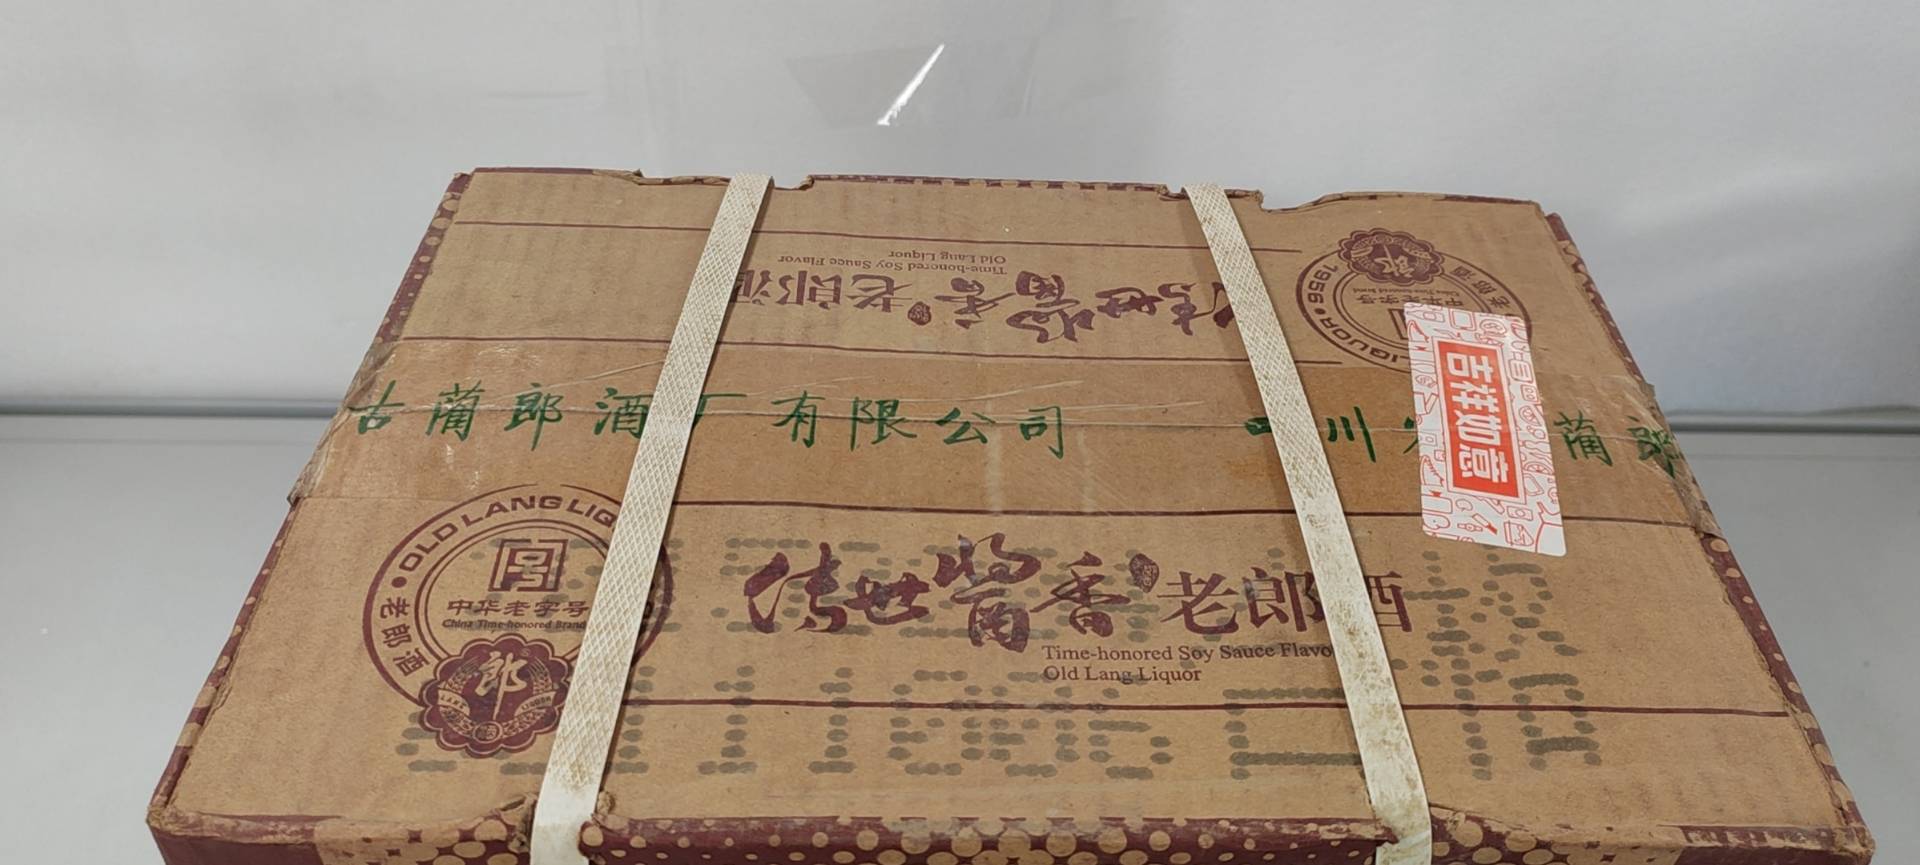 Time-honored Soy Sauce Flavor
Old Lang Liquor
传世酱香老郎酒
1956
老郎酒
LIQUOR
中华老字号
China Time-honored Brand
郎
古蔺郎酒厂有限公司
四川
蔺郎
吉祥如意
OLD LANG LIQ
老郎酒
中华老字号
China Time-honored Brand
郎
传世酱香老郎酒
Time-honored Soy Sauce Flavo
Old Lang Liquor